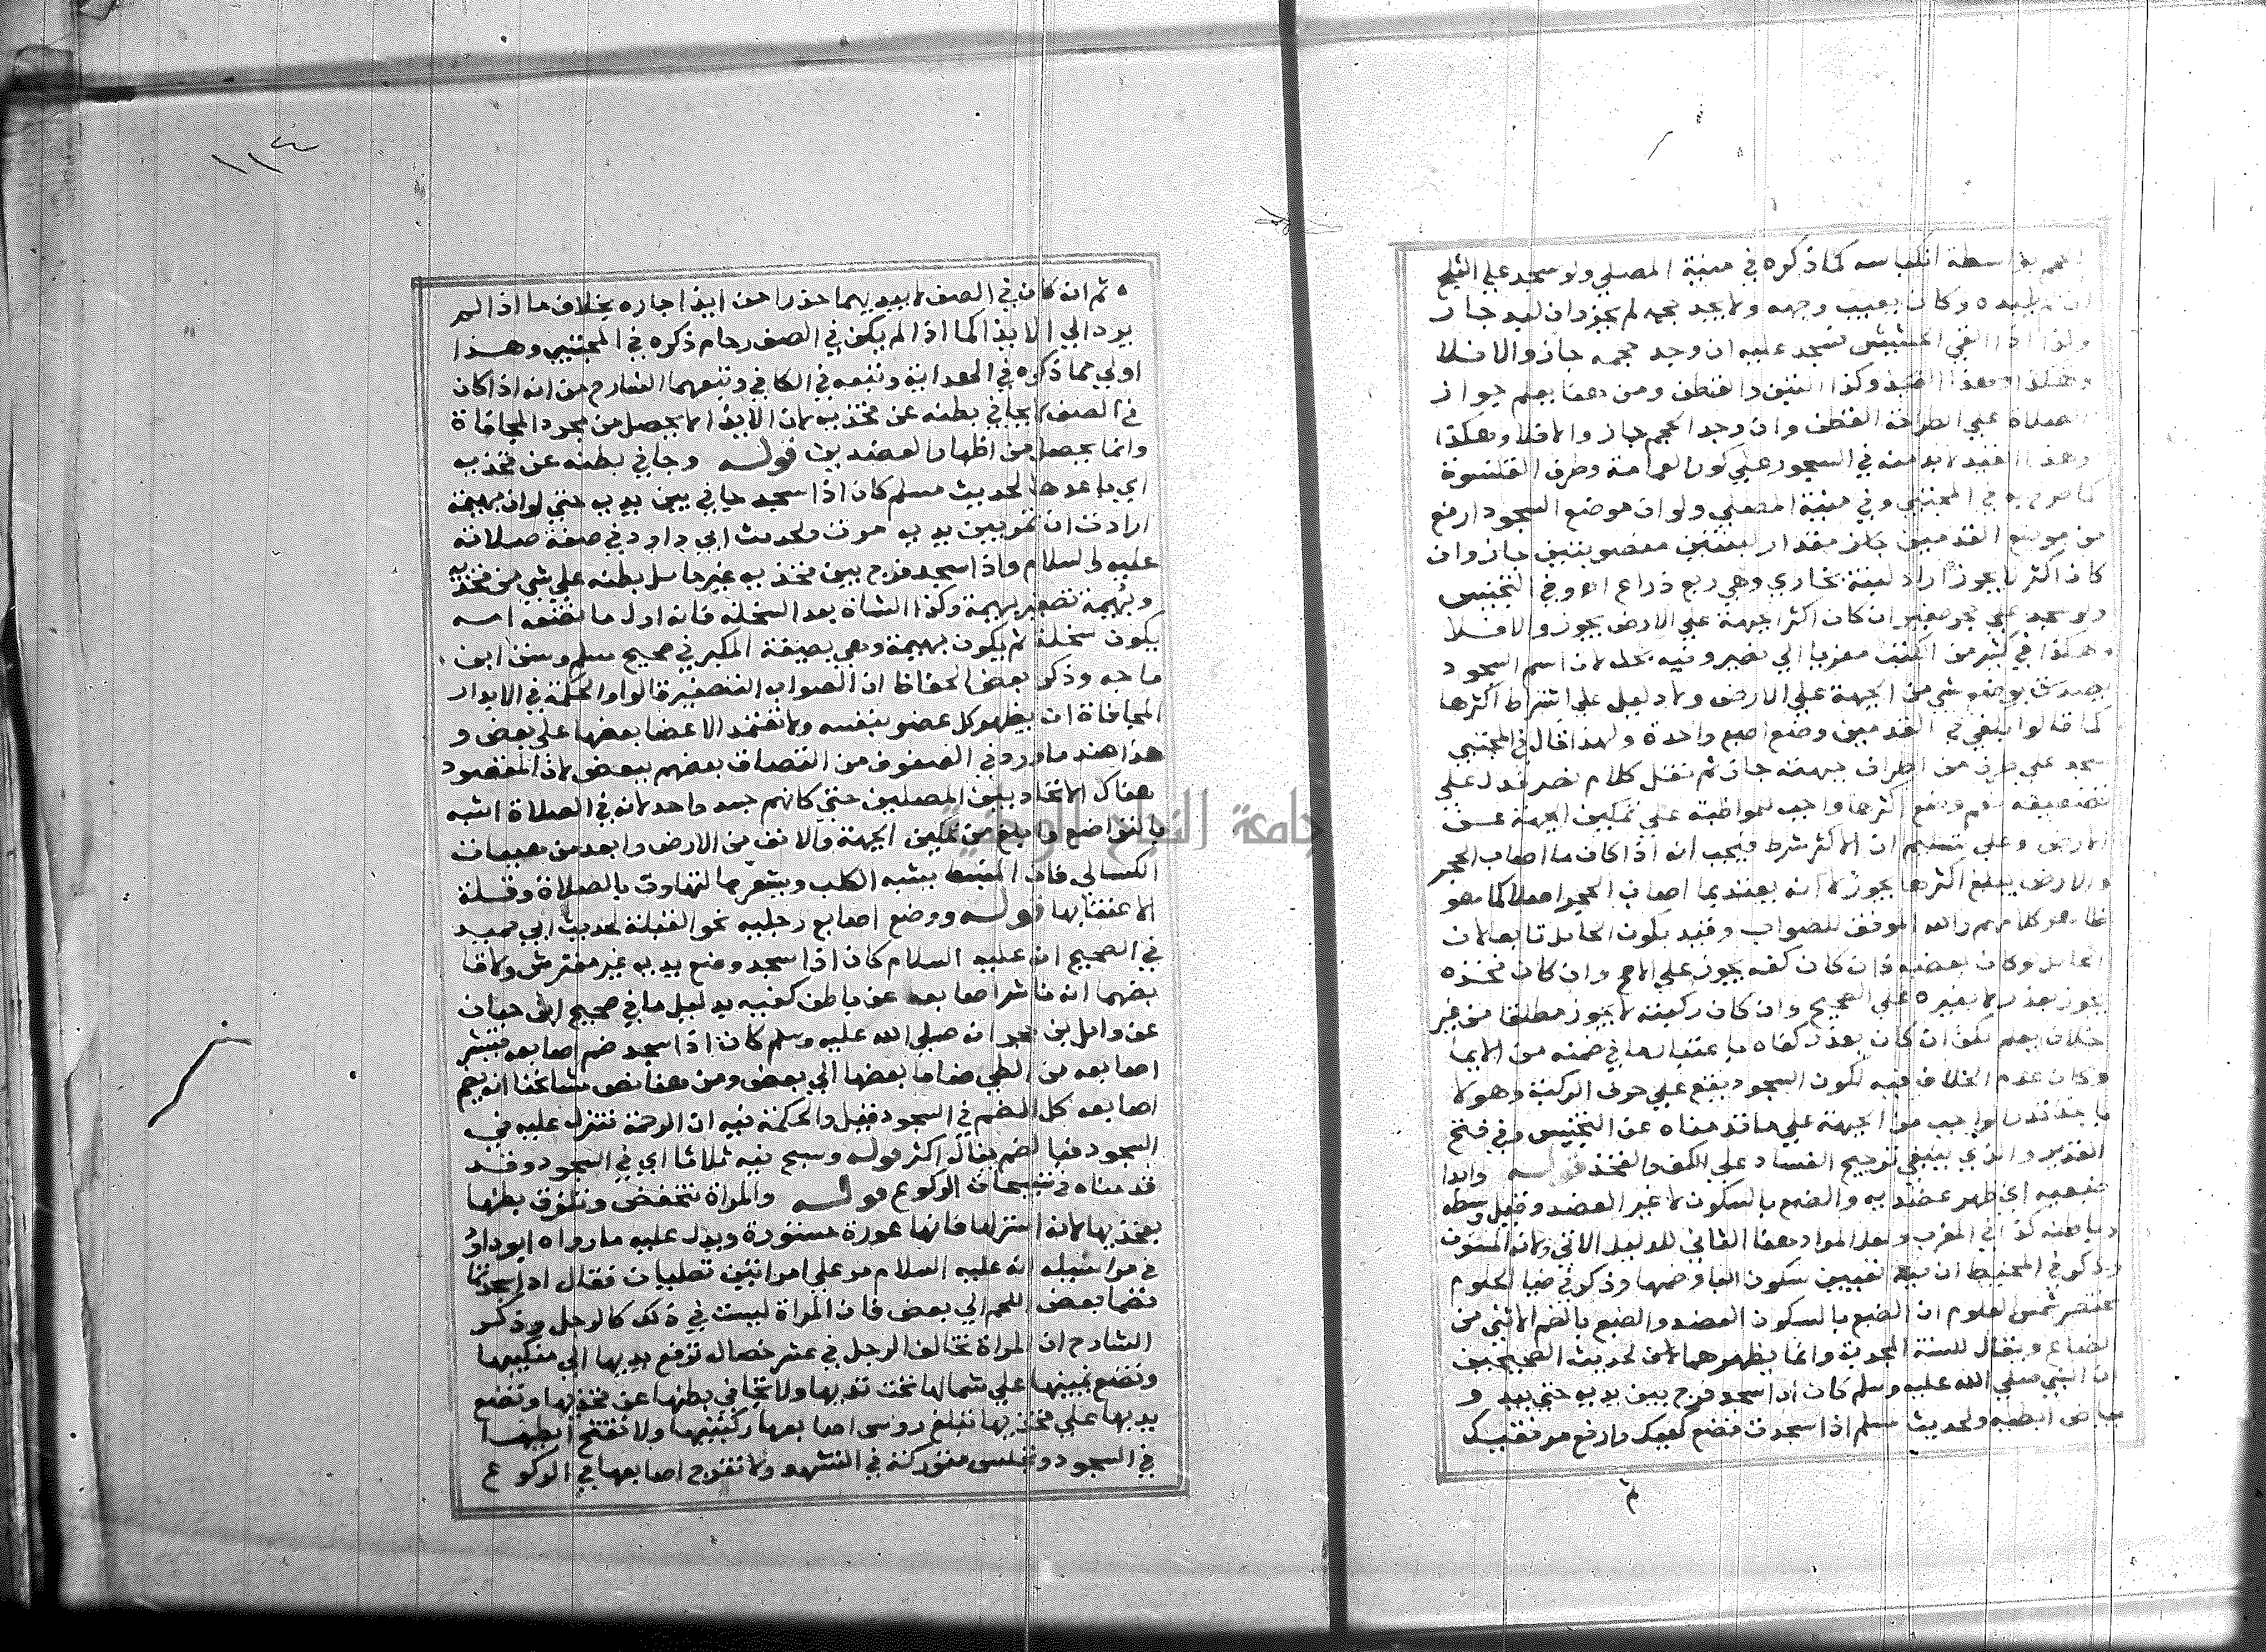 بواسطة انكباسه كما ذكره في منية المصلي ولو سجد على الثلج
ان لم يلبده وكان يغيب وجهه ولا يجد حجمه لم يجز وان لبد جاز
ولذا اذا القي الحشيش فسجد عليه ان وجد حجمه جاز والا فلا
وكذا التبن والقطن ومن هنا يعلم جواز
الصلاة على الطراحة القطن وان وجد الحجم جاز والا فلا وهكذا
وهذا القيد لا بد منه في السجود على كور العمامة وطرف القلنسوة
كما صرح به في المجتبي وفي منية المصلي ولو ان موضع السجود ارفع
من موضع القدمين بمقدار لبنتين منصوبتين جاز وان
كان اكثر لا يجوز اراد لبنة بخاري وهي ربع ذراع اه وفي التجنيس
ولو سجد على حجر صغير ان كان اكثر الجبهة على الارض يجوز والا فلا
وهكذا في كثير من الكتب معزيا الي نصير وفيه بحث لان اسم السجود
يصدق بوضع شي من الجبهة على الارض ولا دليل على اشتراط اكثرها
كما قالوا يكفي في القدمين وضع اصبع واحدة ولهذا قال في المجتبي
سجد على طرف من اطراف جبهته جاز ثم نقل كلام نصير فدل على
تضعيفه نعم وضع اكثرها واجب للمواظبة على تمكين الجبهة من
الارض وعلى تسليم ان الاكثر شرط فيجب انه اذا كان ما اصاب الحجر
والارض يبلغ اكثرها يجوز لا انه يعتد بما اصاب الحجر اصلا كما هو
ظاهر كلامهم والله الموفق للصواب وقيد بكون الحامل تابعا لان
الحامل لو كان بعضه فان كان كفه يجوز على الاصح وان كان فخذه
يجوز بعذر لا بغيره على الصحيح وان كان ركبته لا يجوز مطلقا من غير
خلاف يعلم لكن ان كان بعذر كفاه باعتبار ما في ضمنه من الايما
وكان عدم الخلاف فيه لكون السجود يقع على حرف الركبة وهو لا
ياخذ قدر الواجب من الجبهة على ما قدمناه عن التجنيس وفي فتح
القدير والذي ينبغي ترجيح الفساد على الكف والفخذ قوله وابدا
ضبعيه اي اظهر عضديه والضبع بالسكون لا غير العضد وقيل وسطه
وباطنه كذا في المغرب ولعل المراد هنا الثاني للدليل الاتي ولانه المسنون
وذكر في المحيط ان فيه لغتين سكون البا وضمها وذكر في ضيا الحلوم
مختصر شمس العلوم ان الضبع بالسكون العضد والضبع بالضم الانثي من
الضباع ويقال للسنة المجدبة وانما يظهرهما لحديث الصحيحين
ان النبي صلي الله عليه وسلم كان اذا سجد فرج بين يديه حتي يبدو
بياض ابطيه ولحديث مسلم اذا سجدت فضع كفيك وارفع مرفقيك
١١٤
ثم ان كان في الصف لا يبديهما حذرا من ايذا جاره بخلاف ما اذا لم
يود الي الايذا كما اذا لم يكن في الصف زحام ذكره في المجتبي وهذا
اولي مما ذكره في الهداية وتبعه في الكافي وتبعهما الشارح من انه اذا كان
في الصف لا يجافي بطنه عن فخذيه لان الايذا لا يحصل من مجرد المجافاة
وانما يحصل من اظهار العضدين قوله وجافي بطنه عن فخذيه
اي باعدها لحديث مسلم كان اذا سجد جافي بين يديه حتي لو ان بهيمة
ارادت ان تمر بين يديه مرت ولحديث ابي داود في صفة صلاته
عليه السلام واذا سجد فرج بين فخذيه غير حامل بطنه على شي من فخذيه
وبهيمة تصغير بهيمة وكذا الشاة بعد السخلة فانه اول ما تضعه امه
يكون سخلة ثم يكون بهيمة وهي بصيغة المكبر في صحيح مسلم وسنن ابن
ماجه وذكر بعض الحفاظ ان الصواب التصغير قالوا والحكمة في الابدا
والمجافاة ان يظهر كل عضو بنفسه ولا تعتمد الاعضا بعضها على بعض و
هذا ضد ما ورد في الصفوف من التصاق بعضهم ببعض لان المقصود
هناك الاتحاد بين المصلين حتي كانهم جسد واحد لانه في الصلاة اشبه
بالتواضع وابلغ من تمكين الجبهة والانف من الارض وابعد من هيات
الكسالى فان المنبسط يشبه الكلب ويشعر بالتهاون بالصلاة وقلة
الاعتنا بها قوله ووضع اصابع رجليه نحو القبلة لحديث ابي حميد
في الصحيح انه عليه السلام كان اذا سجد وضع يديه غير مفترش ولا قا
بضهما انه ناشر اصابعه عن باطن كفيه بدليل ما في صحيح ابن حبان
عن وائل بن حجر انه صلي الله عليه وسلم كان اذا سجد ضم اصابعه فنشر
اصابعه من الطي ضاما بعضها الي بعض ومن هنا نص مشايخنا انه يضم
اصابعه كل الضم في السجود قيل والحكمة فيه ان الرحمة تنزل عليه في
السجود فبالضم ينال اكثر قوله وسبح فيه ثلاثا اي في السجود وقد
قدمناه في تسبيحات الركوع قوله والمراة تنخفض وتلزق بطنها
بفخذيها لانه استر لها فانها عورة مستورة ويدل عليه ما رواه ابو داود
في مراسيله انه عليه السلام مر علي امراتين تصليان فقال اذا سجدتما
فضما بعض اللحم الي بعض فان المراة ليست في ذلك كالرجل وذكر
الشارح ان المراة تخالف الرجل في عشر خصال ترفع يديها الي منكبيها
وتضع يمينها علي شمالها تحت ثدييها ولا تجافي بطنها عن فخذيها وتضع
يديها علي فخذيها تبلغ روس اصابعها ركبتيها ولا تفتح ابطيها
في السجود وتجلس متوركة في التشهد ولا تفرج اصابعها في الركوع
جامعة النجاح الوطنية